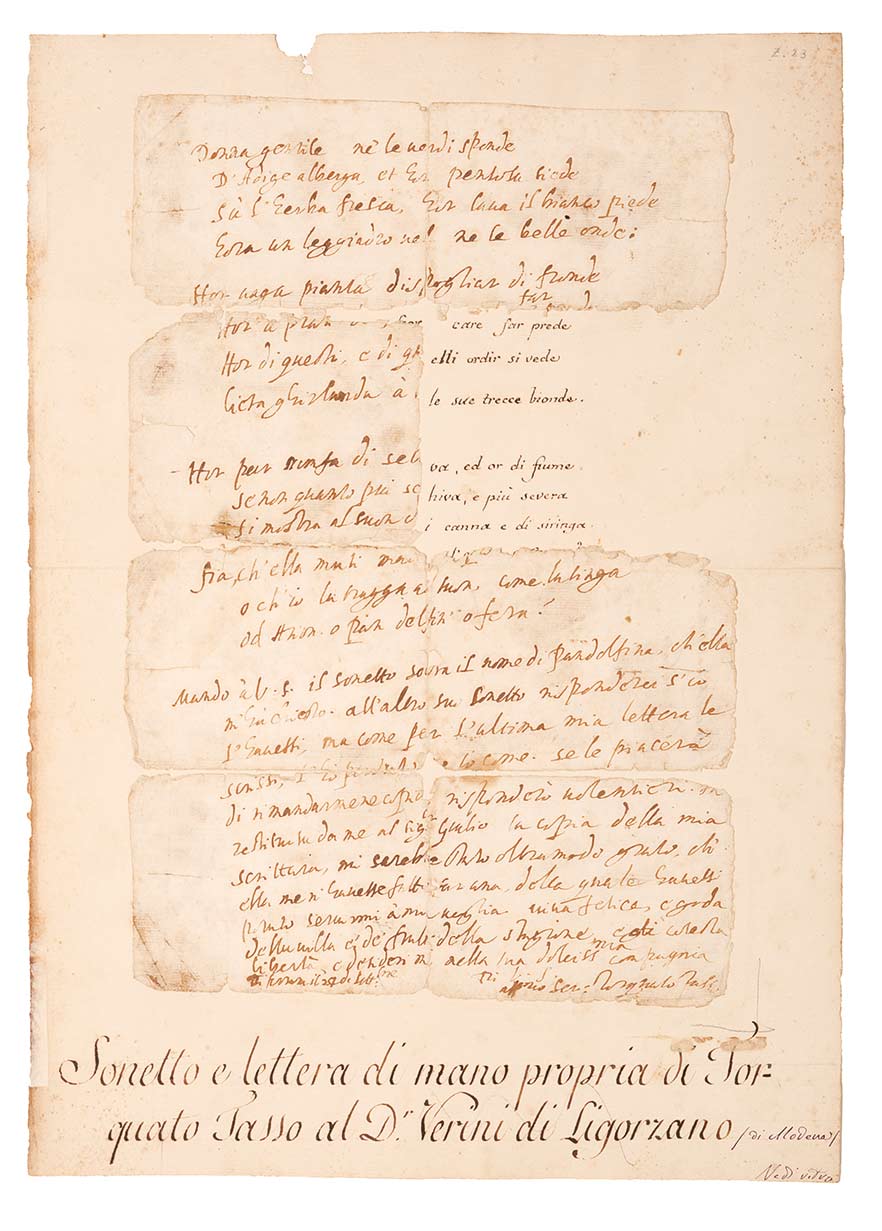 Z. 23
Donna gentile ne le verdi sponde
D'Adige alberga, et hor pensosa siede
Sù l'herba fresca, hor lava il bianco piede
hora un leggiadro vel ne le belle onde:
Hor vaga pianta dispogliar di fronde
far
Hor care far prede
Hor di questi, e di qu elli ordir si vede
lieta ghirlanda à le sue trecce bionde.
Hor par ninfa di sel va, ed or di fiume
se non quanto più sc hiva, e più severa
si mostra al suon d i canna e di siringa.
fia, ch'ella muti
o ch'io la tragga al suon, come lusinga
od Arion o pian delfin' o fera?
Mando à V. S. il sonetto sovra il nome di Pandolfina, ch'ella
m'ha chiesto. all'altro suo sonetto risponderei s'io
l'havessi, ma come per l'ultima mia lettera le
scrissi, l'ho perduto come. se le piacerà
di rimandarmene copia, risponderò volentieri.
restituita da me al sigr Giulio la copia della mia
scrittura, mi sarebbe stato oltramodo grato, ch'
ella me n'havesse fatta far una, della quale havessi
potuto servirmi à mia voglia. viva felice, e goda
della villa e de' frutti della stagione, e di cotesta
libertà, e nella sua dolciss.ma compagnia
di Settbre
ser. Torquato Tasso.
Sonetto e lettera di mano propria di Tor-
quato Tasso al Dr. Verini di Ligorzano (di Modena)
Vedi